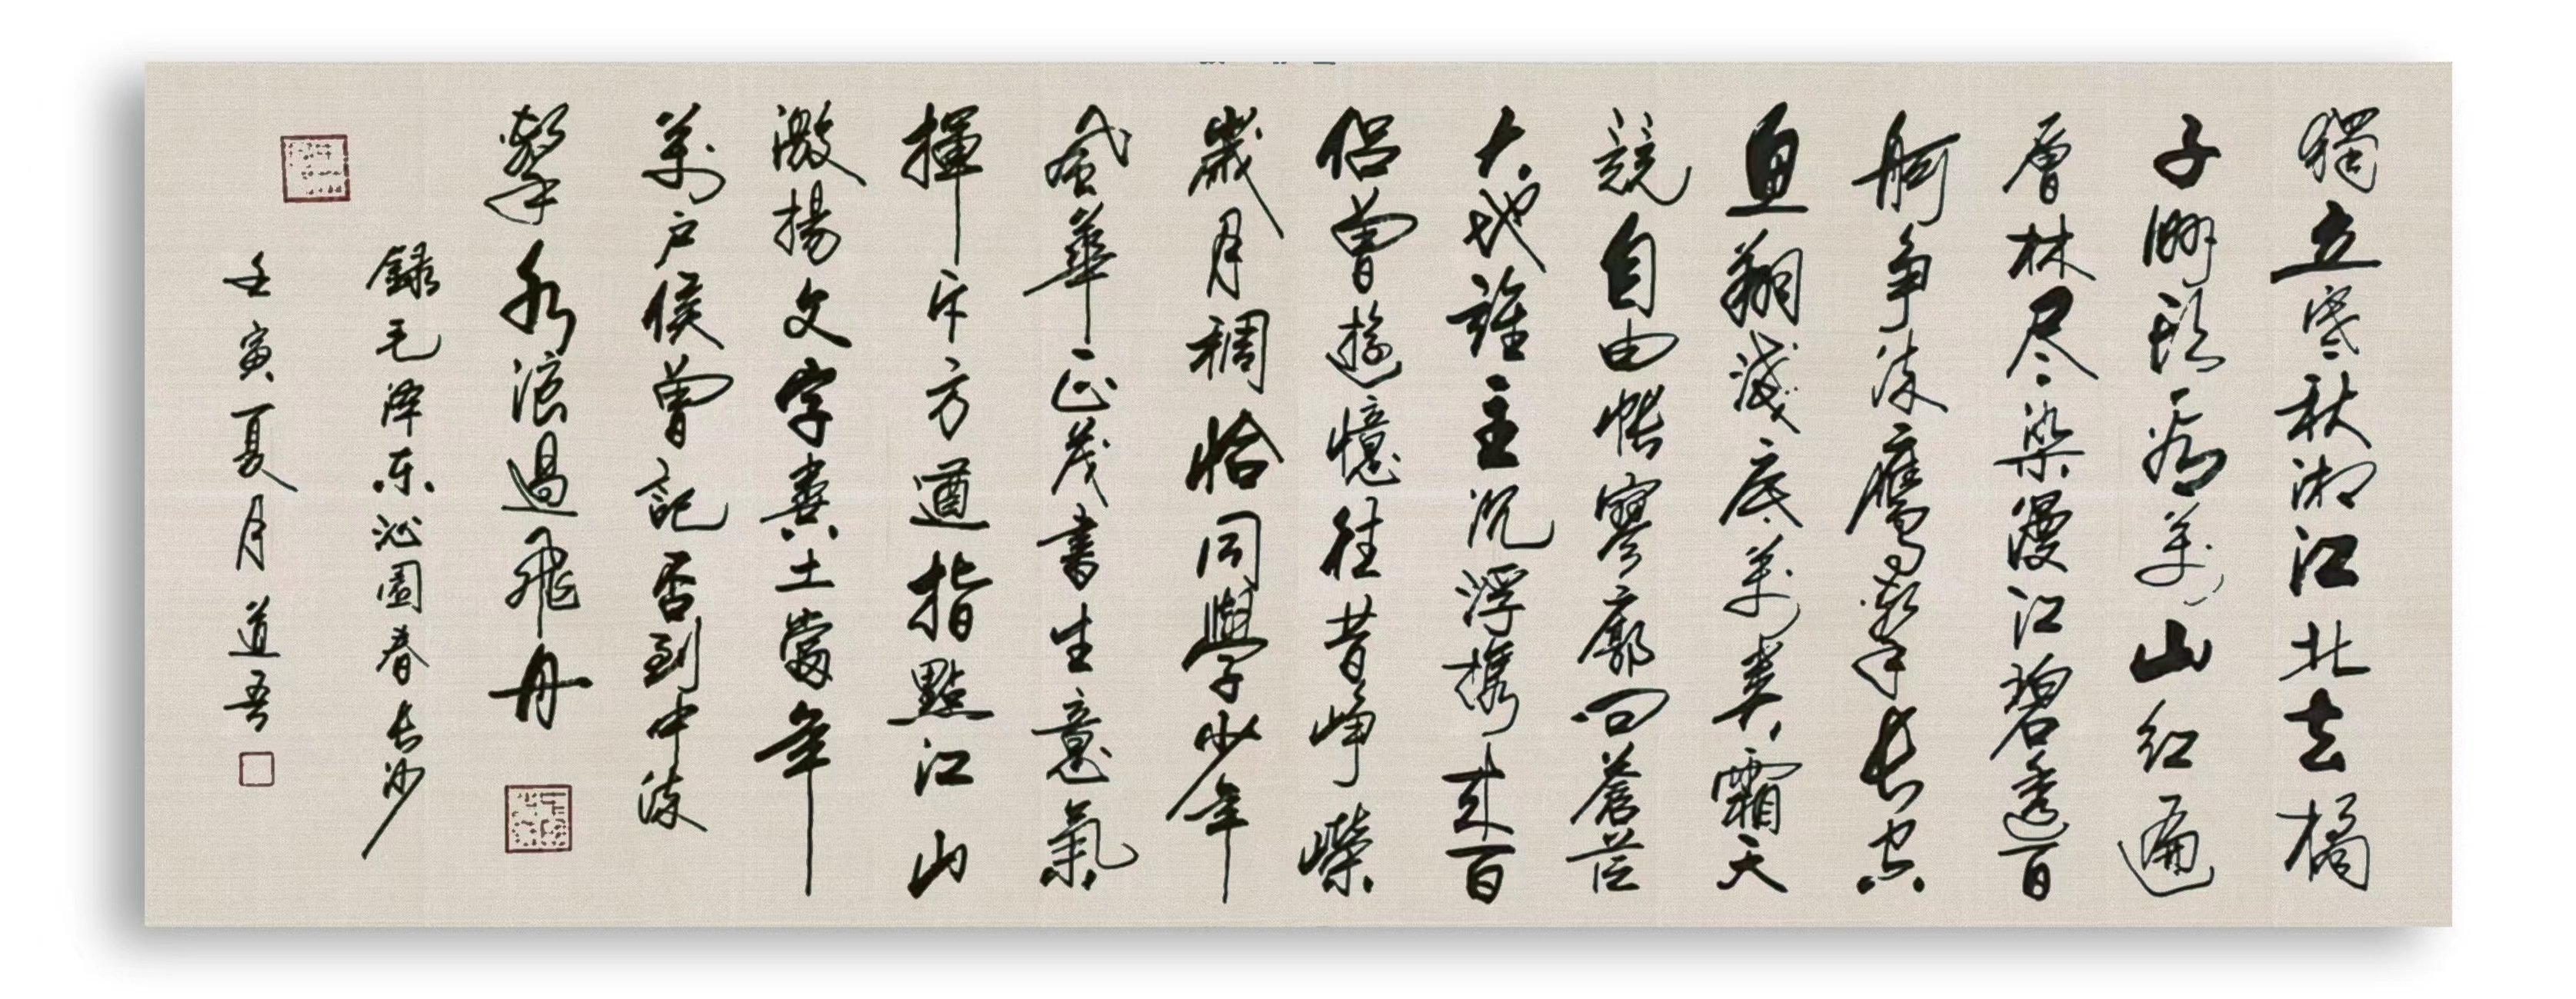 獨立寒秋湘江北去橘
子洲頭看萬山紅遍
層林尽染漫江碧透百
舸争流鷹擊长空
鱼翔淺底萬类霜天
競自由悵寥廓问蒼茫
大地誰主沉浮携来百
侣曾遊憶往昔峥嶸
歲月稠恰同學少年
風華正茂書生意氣
揮斥方遒指點江山
激揚文字糞土當年
萬户侯曾記否到中流
擊水浪遏飛舟
録毛泽东沁園春长沙
壬寅夏月道吾